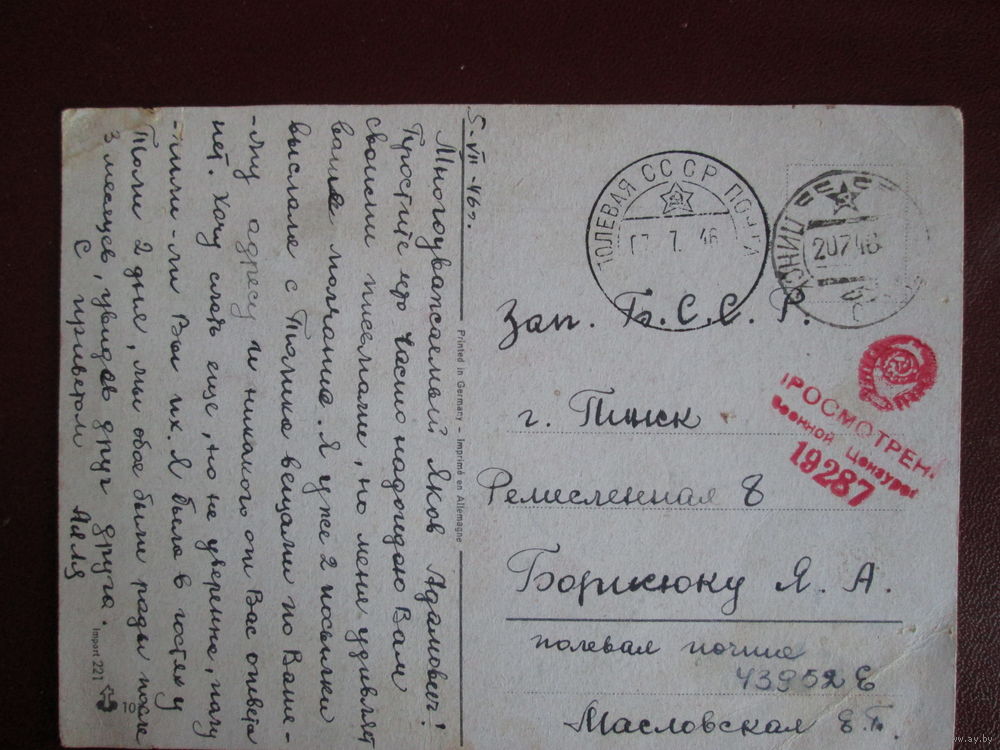 5. VII - 46 г.
Многоуважаемый Яков Адамович!
Простите что часто надоедаю Вам
своими письмами, но меня удивляет
ваше молчание. Я уже 2 посылки
выслала с Толика вещами по Ваше-
-му адресу и никакого от Вас ответа
нет. Хочу слать еще, но не уверенна, полу-
-чили-ли Вы их. Я была в гостях у
Толи 2 дня, мы обое были рады после
3 месяцев, увидав друг друга.
С приветом Аля
Printed in Germany - Imprimé en Allemagne
Import 221
10
ПОЛЕВАЯ СССР ПОЧТА
7. 7. 46
ПИНСК
20 7 46
Зап. Б. С. С. Р.
г. Пинск
Ремесленная 8
Борисюку Я. А.
полевая почта
43952 Е
Масловская Е. Г.
ПРОСМОТРЕНО
Военной Цензурой
19287
www.ay.by